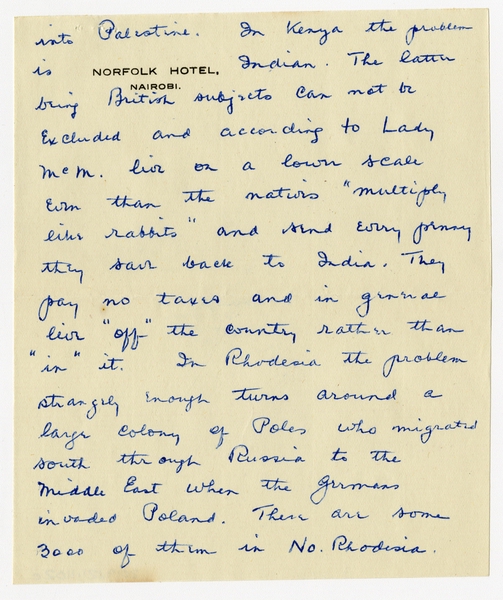 into Palestine. In Kenya the problem
is NORFOLK HOTEL, Indian. The latter
NAIROBI.
being British subjects can not be
excluded and according to Lady
McM. live on a lower scale
even than the natives "multiply
like rabbits" and send every penny
they save back to India. They
pay no taxes and in general
live "off" the country rather than
"in" it. In Rhodesia the problem
strangely enough turns around a
large colony of Poles who migrated
south through Russia to the
Middle East when the Germans
invaded Poland. There are some
3000 of them in No. Rhodesia.